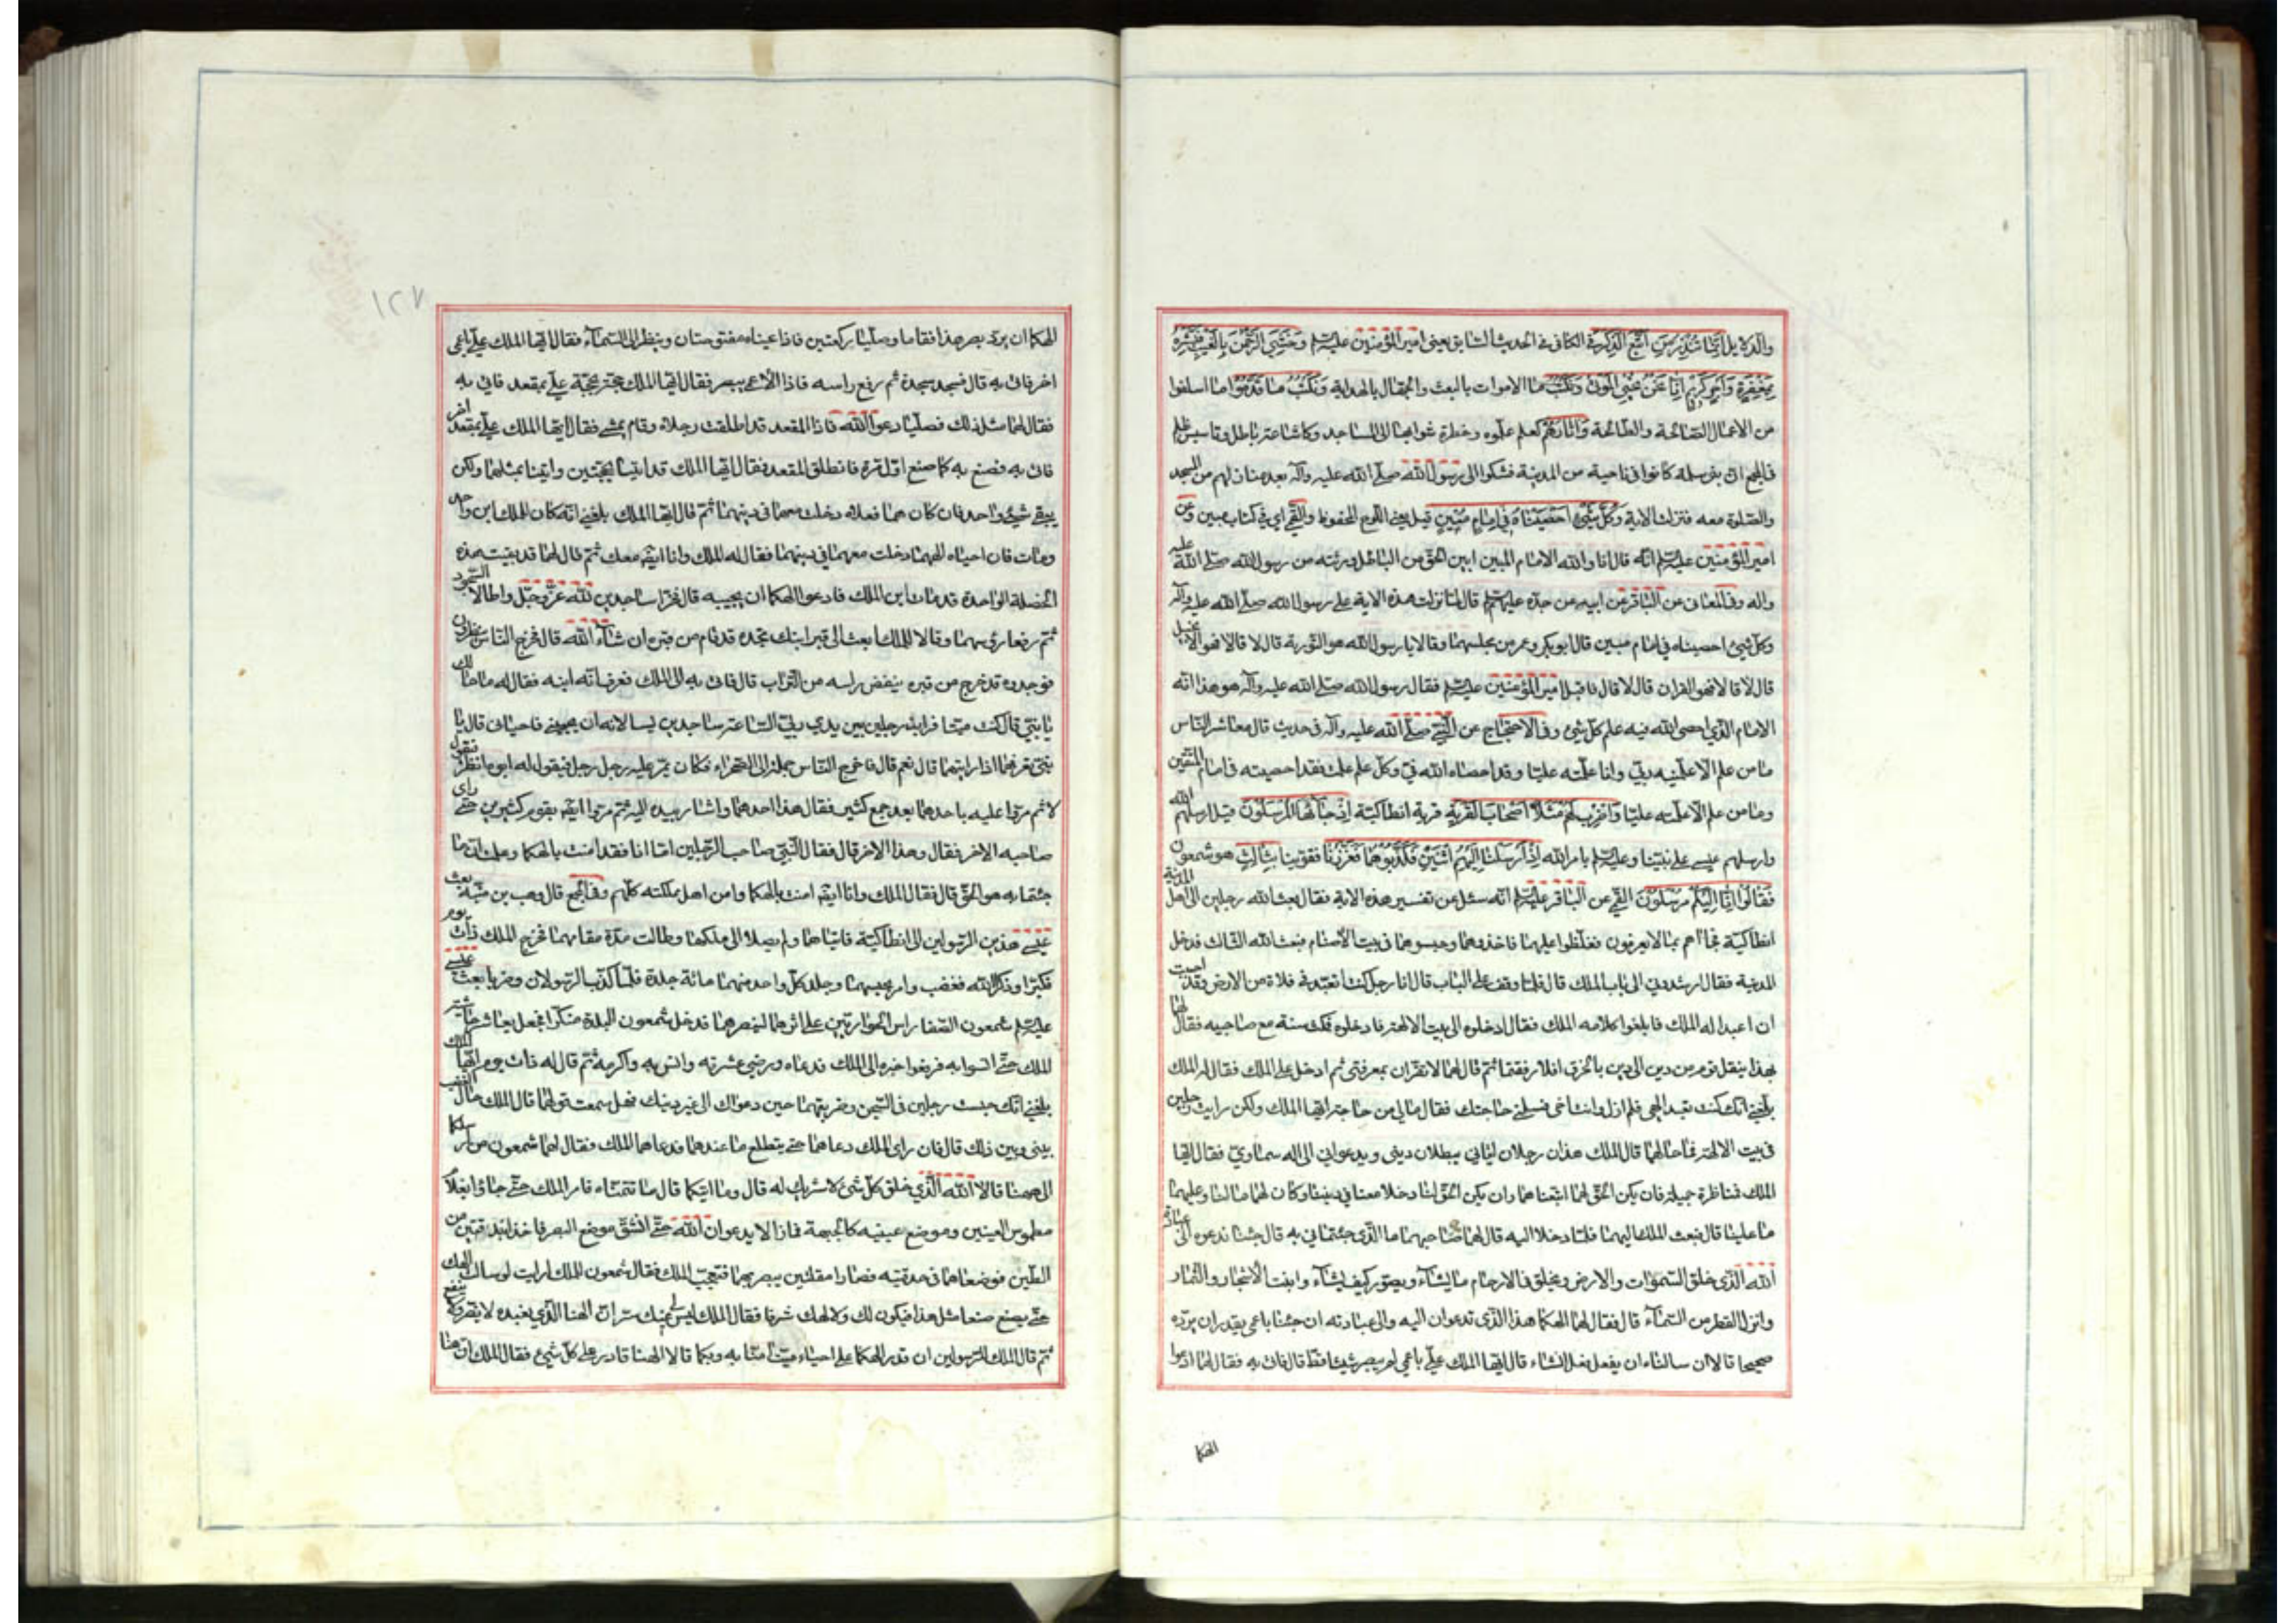 والدلايل إنما تنذر من اتبع الذكر في الكافي في الحديث السابق يعني امير المؤمنين عليه السلم وخشي الرحمن بالغيب فبشره
بمغفرة وأجر كريم إنا نحن نحيي الموتى ونكتب ما الاموات بالبعث والجهال بالهداية ونكتب ما قدموا ما اسلفوا
من الاعمال الصالحة والطالحة وآثارهم كعلم علموه وخطوة مشوا بها الى المساجد وكاشاعة باطل وتاسيس ظلم
في المجمع ان بني سلمة كانوا في ناحية من المدينة فشكوا الى رسول الله صلى الله عليه وآله بعد منازلهم من المسجد
والصلوة معه فنزلت الاية وكل شيئ احصيناه في إمام مبين قيل يعني اللوح المحفوظ والقمي اي في كتاب مبين وعن
امير المؤمنين عليه السلم انه قال انا والله الامام المبين ابين الحق من الباطل ورثته من رسول الله صلى الله عليه
واله وفي المعاني عن الباقر عن ابيه عن جده عليهم السلم قال لما نزلت هذه الاية على رسول الله صلى الله عليه وآله
وكل شيئ احصيناه في امام مبين قال ابو بكر وعمر من مجلسهما وقالا يا رسول الله هو التورية قال لا قالا فهو الانجيل
قال لا قالا فهو القران قال لا قال فاقبل امير المؤمنين عليه السلم فقال رسول الله صلى الله عليه وآله هو هذا انه
الامام الذي احصى الله فيه علم كل شيئ وفي الاحتجاج عن النبي صلى الله عليه وآله في حديث قال معاشر الناس
ما من علم الا علمنيه ربي وانا علمته عليا وقد احصاه الله في وكل علم علمت فقد احصيته في امام المتقين
وما من علم الا علمته عليا واضرب لهم مثلا اصحاب القرية قرية انطاكية إذ جاءها المرسلون قيل ارسلهم الله
وارسلهم عيسى على نبينا وعليه السلم بامر الله إذ أرسلنا إليهم اثنين فكذبوهما فعززنا فقوينا بثالث هو شمعون
فقالوا إنا إليكم مرسلون القمي عن الباقر عليه السلم انه سئل عن تفسير هذه الاية فقال بعث الله رجلين الى اهل المدينة
انطاكية فجاءاهم بما لا يعرفون فغلظوا عليهما فاخذوهما وحبسوهما في بيت الاصنام فبعث الله الثالث فدخل
المدينة فقال ارشدوني الى باب الملك قال فلما وقف على الباب قال انا رجل كنت اتعبد في فلاة من الارض وقد احببت
ان اعبد اله الملك فابلغوا كلامه الملك فقال ادخلوه الى بيت الالهة فادخلوه فمكث سنة مع صاحبيه فقال لهما
بهذا ينقل قوم من دين الى دين بالخرق افلا رفقتما ثم قال لهما لا تقران بمعرفتي ثم ادخل على الملك فقال له الملك
بلغني انك كنت تعبد الهي فلم ازل وانت اخي فسلني حاجتك فقال ما لي من حاجة ايها الملك ولكن رايت رجلين
في بيت الالهة فما حالهما قال الملك هذان رجلان اتياني يبطلان ديني ويدعواني الى اله سماوي فقال ايها
الملك فمناظرة جميلة فان يكن الحق لهما اتبعناهما وان يكن الحق لنا دخلا معنا في ديننا وكان لهما ما لنا وعليهما
ما علينا قال فبعث الملك اليهما فلما دخلا اليه قال لهما صاحبهما ما الذي جئتماني به قال جئنا ندعوه الى عبادة
الله الذي خلق السموات والارض ويخلق في الارحام ما يشاء ويصور كيف يشاء وانبت الاشجار والثمار
وانزل القطر من السماء قال فقال لهما الهكما هذا الذي تدعوان اليه والى عبادته ان جئنا باعمى يقدر ان يرده
صحيحا قالا ان سالناه ان يفعل فعل انشاء قال ايها الملك علي باعمى لم يبصر شيئا قط قال فاتي به فقال لهما ادعوا
الهكما
١٢٧
الهكما ان يرد بصر هذا فقاما وصليا ركعتين فاذا عيناه مفتوحتان وينظر الى السماء فقال ايها الملك علي باعمى
اخر فاتي به قال فسجد سجدة ثم رفع راسه فاذا الاعمى بصير فقال ايها الملك حجة بحجة علي بمقعد فاتي به
فقال لهما مثل ذلك فصليا ودعوا الله فاذا المقعد قد اطلقت رجلاه وقام يمشي فقال ايها الملك علي بمقعد اخر
فاتي به فصنع به كما صنع اول مرة فانطلق المقعد فقال ايها الملك قد اتيا بحجتين واتينا بمثلهما ولكن
بقي شيئ واحد فان كان هما فعلاه دخلت معهما في دينهما ثم قال ايها الملك بلغني انه كان للملك ابن واحد
ومات فان احياه الههما دخلت معهما في دينهما فقال له الملك وانا ايضا معك ثم قال لهما قد بقيت هذه
الخصلة الواحدة قد مات ابن الملك فادعوا الهكما ان يحييه قال فخرا ساجدين لله عز وجل واطالا السجود
ثم رفعا رؤسهما وقالا للملك ابعث الى قبر ابنك تجده قد قام من قبره ان شاء الله قال فخرج الناس ينظرون
فوجدوه قد خرج من قبره ينفض راسه من التراب قال فاتي به الى الملك فعرف انه ابنه فقال له ما حالك
يا بني قال كنت ميتا فرايت رجلين بين يدي ربي الساعة ساجدين يسالانه ان يحييني فاحياني قال يا
بني تعرفهما اذا رايتهما قال نعم قال فاخرج الناس جملة الى الصحراء فكان يمر عليه رجل رجل فيقول له ابوه انظر فيقول
لا ثم مروا عليه باحدهما بعد جمع كثير فقال هذا احدهما واشار بيده اليه ثم مروا ايضا بقوم كثيرين حتى راى
صاحبه الاخر فقال وهذا الاخر قال فقال النبي صاحب الرجلين اما انا فقد امنت بالهكما وعلمت ان ما
جئتما به هو الحق قال فقال الملك وانا ايضا امنت بالهكما وامن اهل مملكته كلهم وفي المجمع قال وهب بن منبه بعث
عيسى هذين الرسولين الى انطاكية فاتياها ولم يصلا الى ملكها وطالت مدة مقامهما فخرج الملك ذات يوم
فكبرا وذكرا الله فغضب وامر بحبسهما وجلد كل واحد منهما مائة جلدة فلما كذب الرسولان وضربا بعث عيسى
عليه السلم شمعون الصفا راس الحواريين على اثرهما لينصرهما فدخل شمعون البلدة منكرا فجعل يعاشر حاشية
الملك حتى انسوا به فرفعوا خبره الى الملك فدعاه ورضي عشرته وانس به واكرمه ثم قال له ذات يوم ايها الملك
بلغني انك حبست رجلين في السجن وضربتهما حين دعواك الى غير دينك فهل سمعت قولهما قال الملك حال الغضب
بيني وبين ذلك قال فان راى الملك دعاهما حتى يتطلع ما عندهما فدعاهما الملك فقال لهما شمعون من ارسلكما
الى ههنا قالا الله الذي خلق كل شيئ لا شريك له قال وما ايتكما قال ما تتمناه فامر الملك حتى جاؤا بغلام
مطموس العينين وموضع عينيه كالجبهة فمازالا يدعوان الله حتى انشق موضع البصر فاخذا بندقتين من
الطين فوضعاهما في حدقتيه فصارا مقلتين يبصر بهما فتعجب الملك فقال شمعون للملك ارايت لو سالت الهك
حتى يصنع صنعا مثل هذا فيكون لك ولالهك شرفا فقال الملك ليس لي عنك سر ان الهنا الذي نعبده لا يضر ولا ينفع
ثم قال الملك للرسولين ان قدر الهكما على احياء ميت امنا به وبكما قالا الهنا قادر على كل شيئ فقال الملك ان هنا